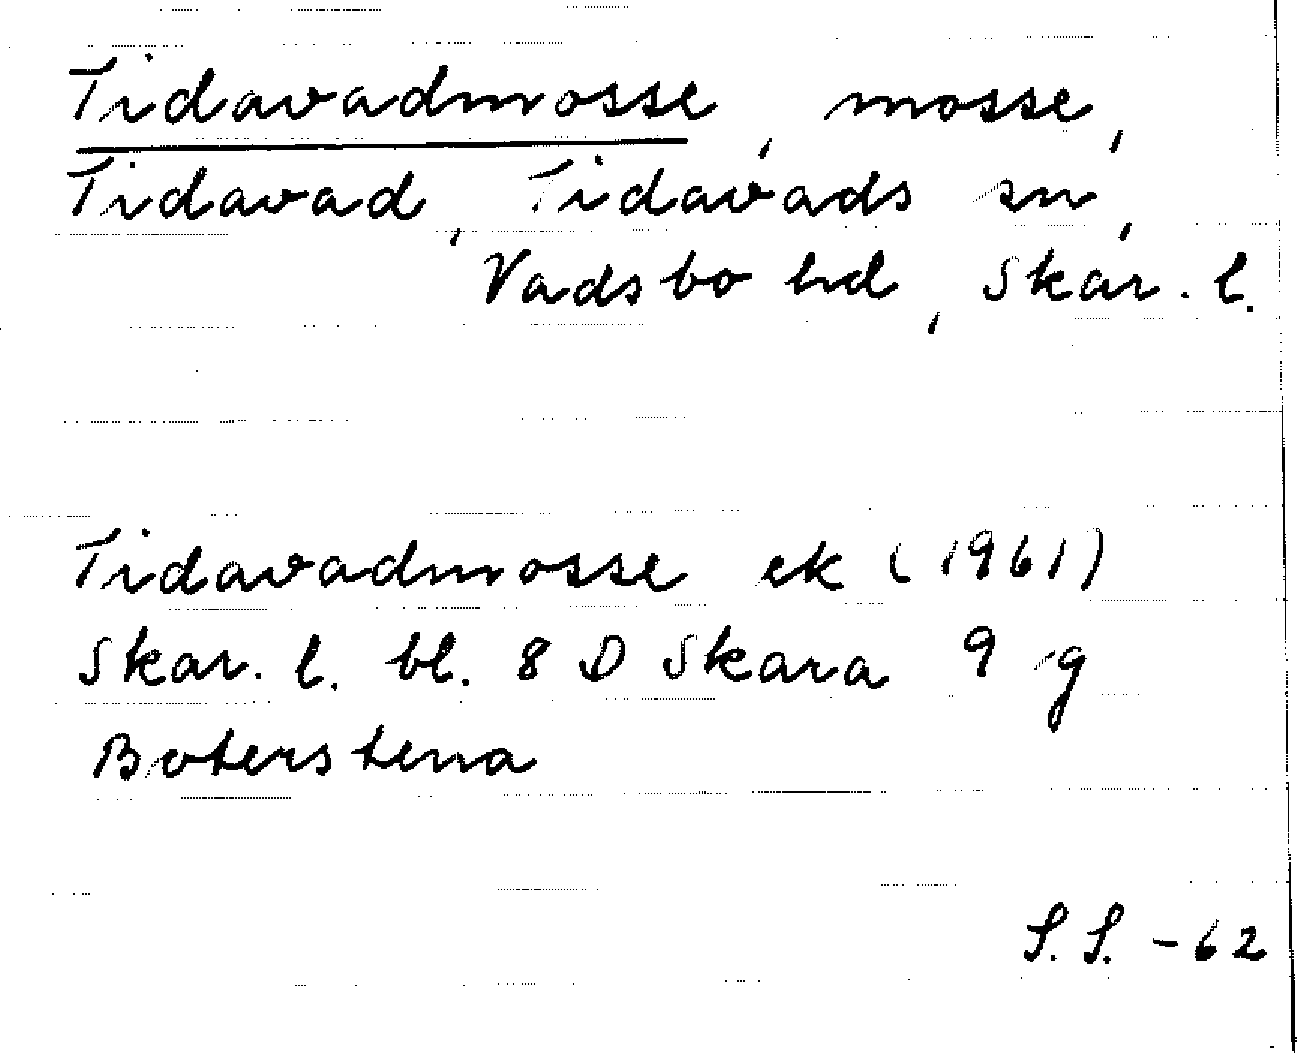 Tidavadmosse, mosse,
Tidavad, Tidavads sn,
Vadsbo hd, Skar. l.
Tidavadmosse ek (1961)
Skar. l. bl. 8 D Skara 9 g
Boterstena
S.S. -62